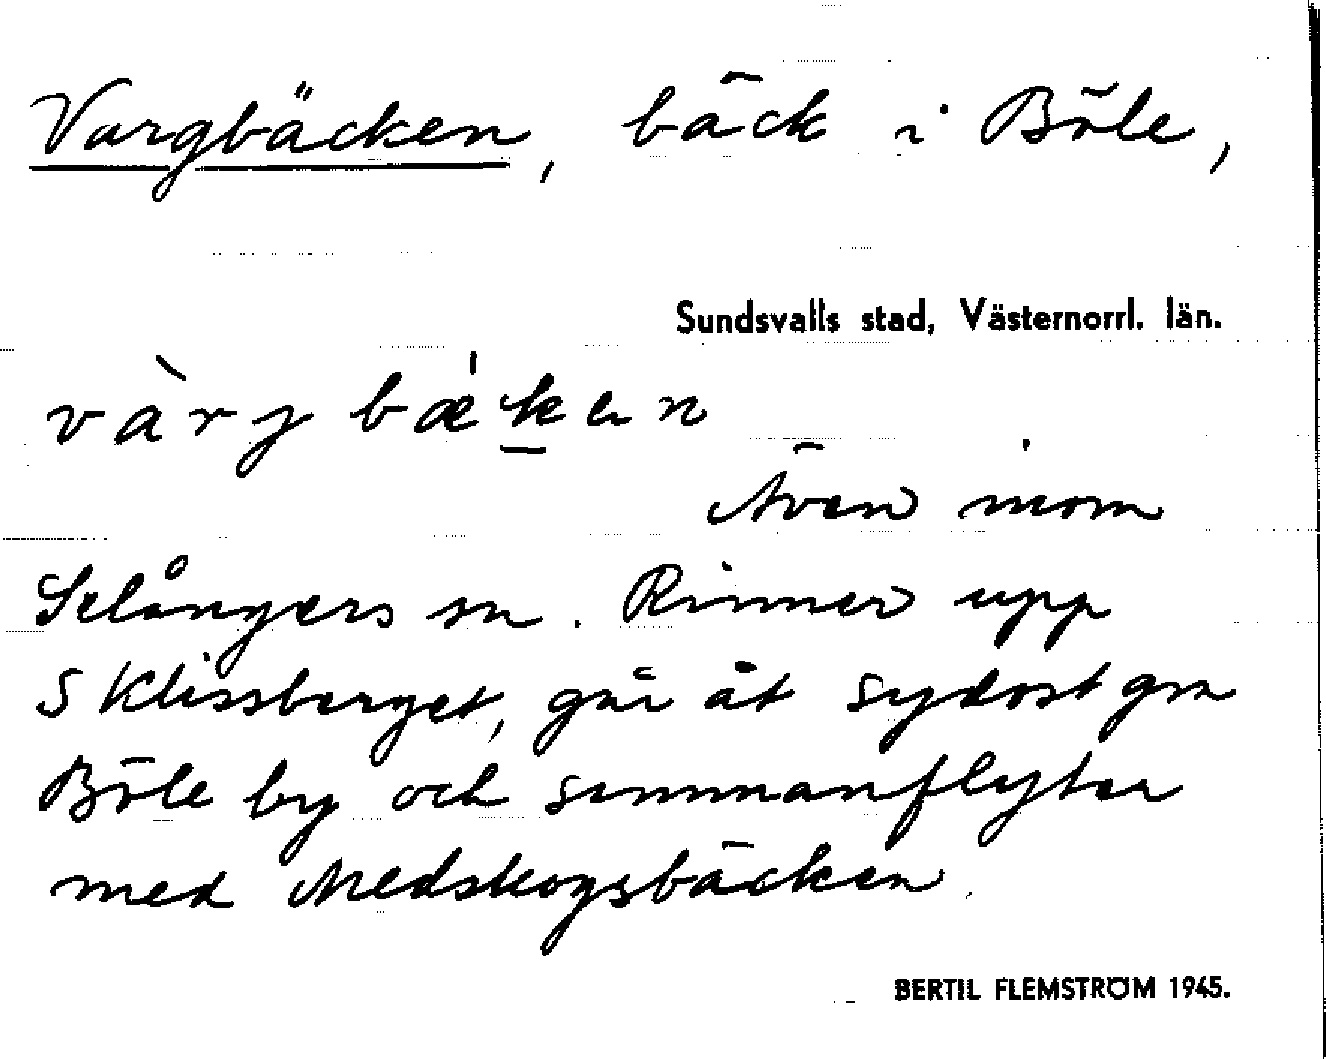 Vargbäcken, bäck i Böle,
Sundsvalls stad, Västernorrl. län.
vàrj bæ'ken
Även inom
Selångers sn. Rinner upp
S Klissberget, går åt sydost gm
Böle by och sammanflyter
med Medskogsbäcken.
BERTIL FLEMSTRÖM 1945.